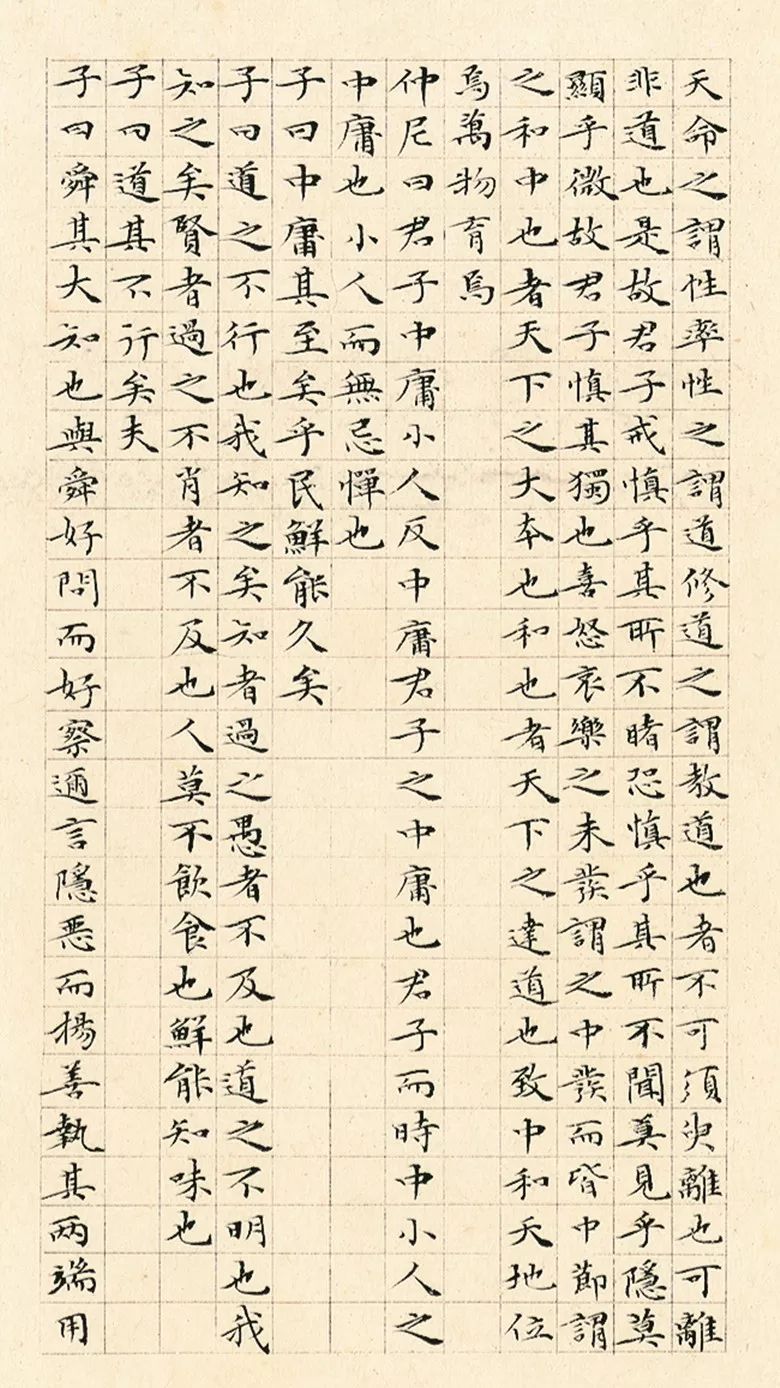 天命之謂性率性之謂道修道之謂教道也者不可須臾離也可離
非道也是故君子戒慎乎其所不睹恐慎乎其所不聞莫見乎隱莫
顯乎微故君子慎其獨也喜怒哀樂之未發謂之中發而皆中節謂
之和中也者天下之大本也和也者天下之達道也致中和天地位
焉萬物育焉
仲尼曰君子中庸小人反中庸君子之中庸也君子而時中小人之
中庸也小人而無忌憚也
子曰中庸其至矣乎民鮮能久矣
子曰道之不行也我知之矣知者過之愚者不及也道之不明也我
知之矣賢者過之不肖者不及也人莫不飲食也鮮能知味也
子曰道其不行矣夫
子曰舜其大知也與舜好問而好察邇言隱惡而揚善執其兩端用